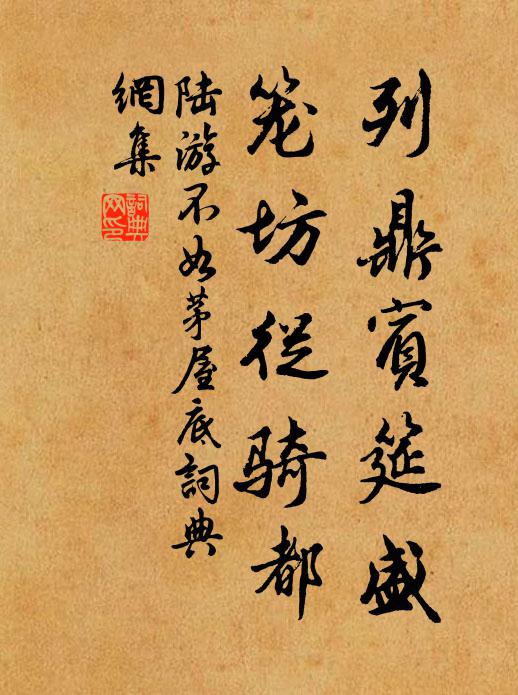 列鼎賓筵盛
笼坊從骑都
陆游不如茅屋底詞典
網集
詞典
网印